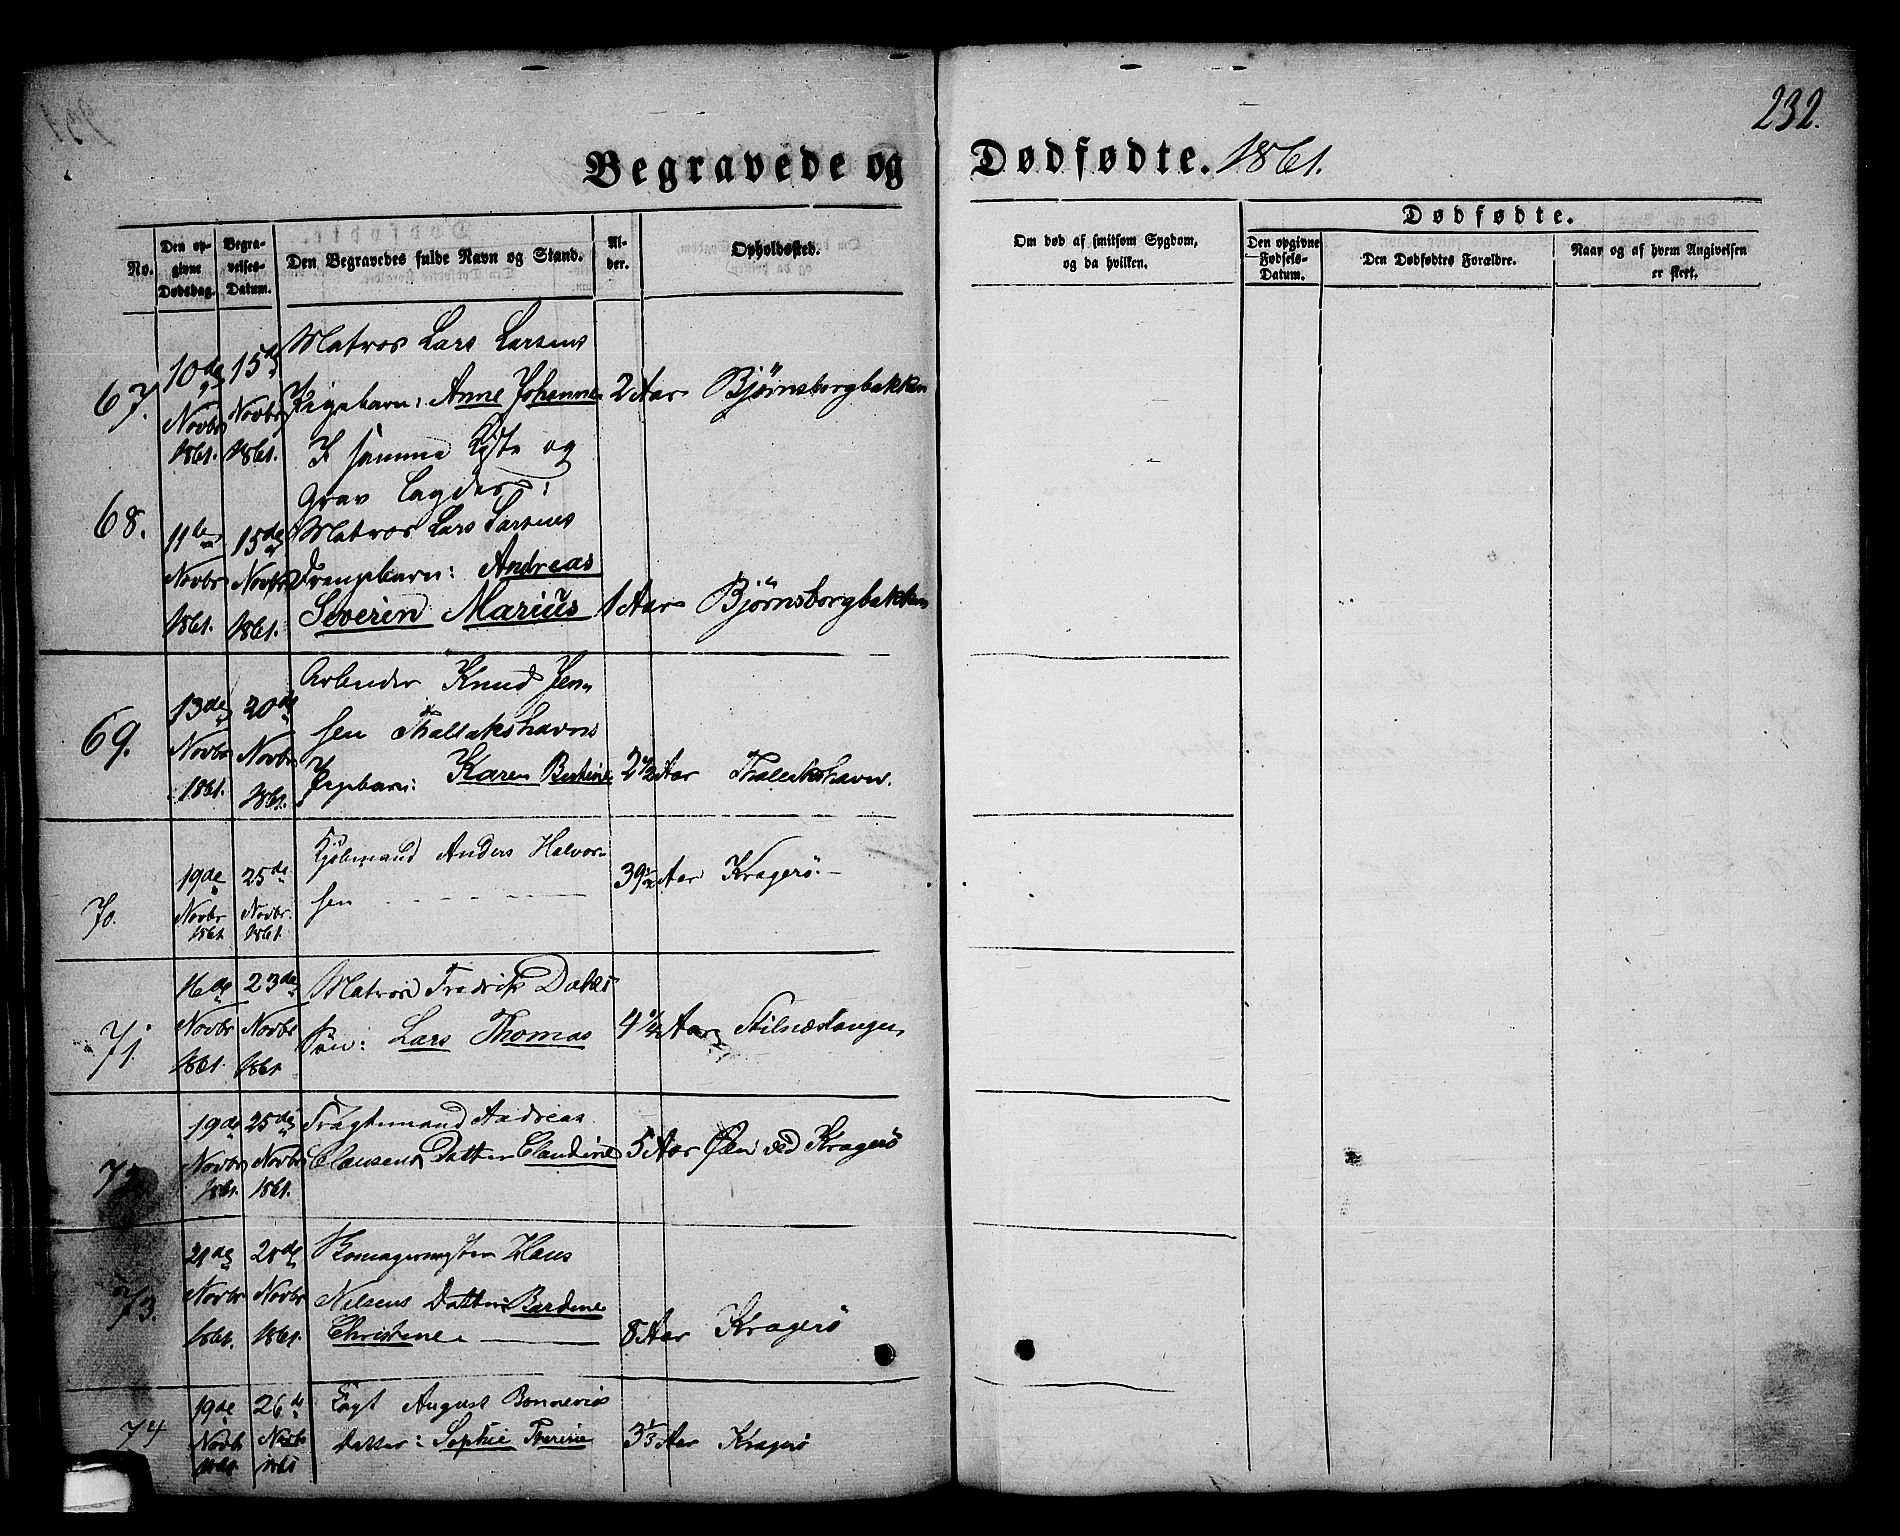 232.
Begravede og Dødfødte. 1861.
No.
Den opgivne Dødsdag.
Begravelses-Datum.
Den Begravedes fulde Navn og Stand.
Alder.
Opholdssted.
Om død af smitsom Sygdom, og da hvilken.
Dødfødte.
Den opgivne Fødsels-Datum.
Den Dødfødtes Forældre.
Naar og af hvem Angivelsen er skeet.
67. 10de Novbr 1861. 15de Novbr 1861.
Matros Lars Larsens
Pigebarn: Anne Johanne 2 Aar Bjørnsborgbakken
I samme Kiste og
Grav lagdes:
68. 11te Novbr 1861. 15de Novbr 1861.
Matros Lars Larsens
Drengebarn: Andreas
Severin Marius 1 Aar Bjørnsborgbakken
69. 13de Novbr 1861. 20de Novbr 1861.
Arbeider Knud Jen-
sen Thallakshavns
Pigebarn: Karen Bertine 2 1/2 Aar Thallakshavn.
70. 19de Novbr 1861 25de Novbr. 1861.
Anders Halvor-
sen 39 1/2 Aar Kragerø.
71. 16de Novbr 1861. 23de Novbr 1861
Matros Fredrik
Søn: Lars Thomas 4 1/4 Aar Stilnæstangen
72. 19de Novbr 1861. 25de Novbr 1861.
Fragtemand Andreas
Clausens Datter Claudine 5 Aar Øen ved Kragerø
73. 21de Novbr 1861. 28de Novbr 1861.
Hans
Nielsens Datter Bardine
Christine 8 Aar Kragerø
74 19de Novbr 1861. 26de Novbr 1861
August Bonnevies
Datter: Sophie Therese 3 1/3 Aar Kragerø